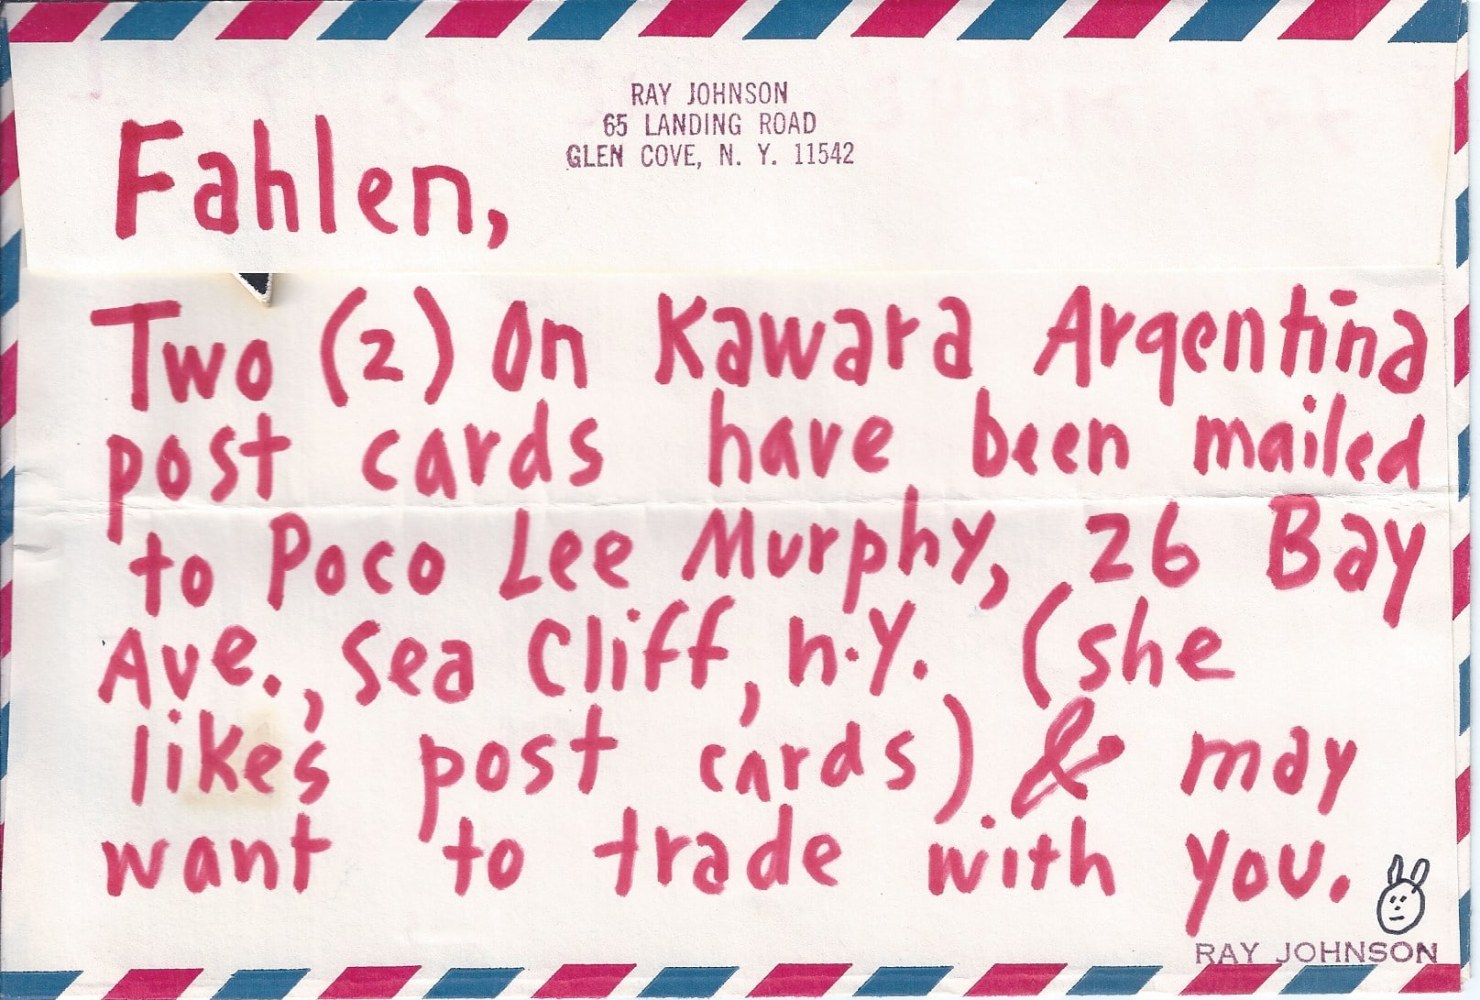 RAY JOHNSON
65 LANDING ROAD
GLEN COVE, N. Y. 11542
Fahlen,
Two (2) On Kawara Argentina
post cards have been mailed
to Poco Lee Murphy, 26 Bay
Ave., Sea Cliff, n.Y. (she
likes post cards) & may
want to trade with you.
RAY JOHNSON